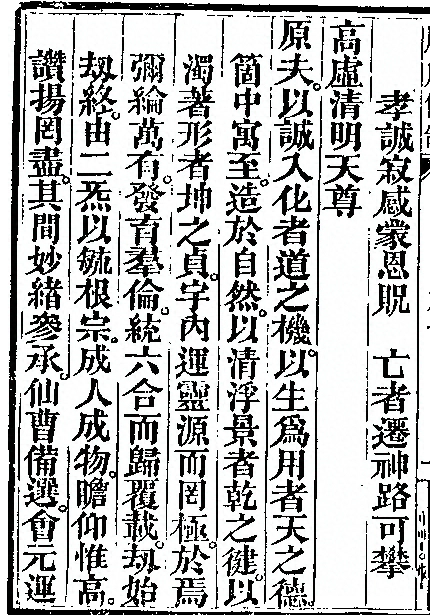 孝誠寂感蒙恩貺　亡者遷神路可攀
高虛清明天尊
原夫。以誠入化者道之機。以生爲用者天之德。
箇中寓至。造於自然。以清浮景者乾之健。以
濁著形者坤之貞。宇內運靈源而罔極。於焉
彌綸萬有。發育羣倫。統六合而歸覆載。刼始
刼終。由二炁以毓根宗。成人成物。瞻仰惟高。
讚揚罔盡。其間妙緒參承。仙曹備選。會元運